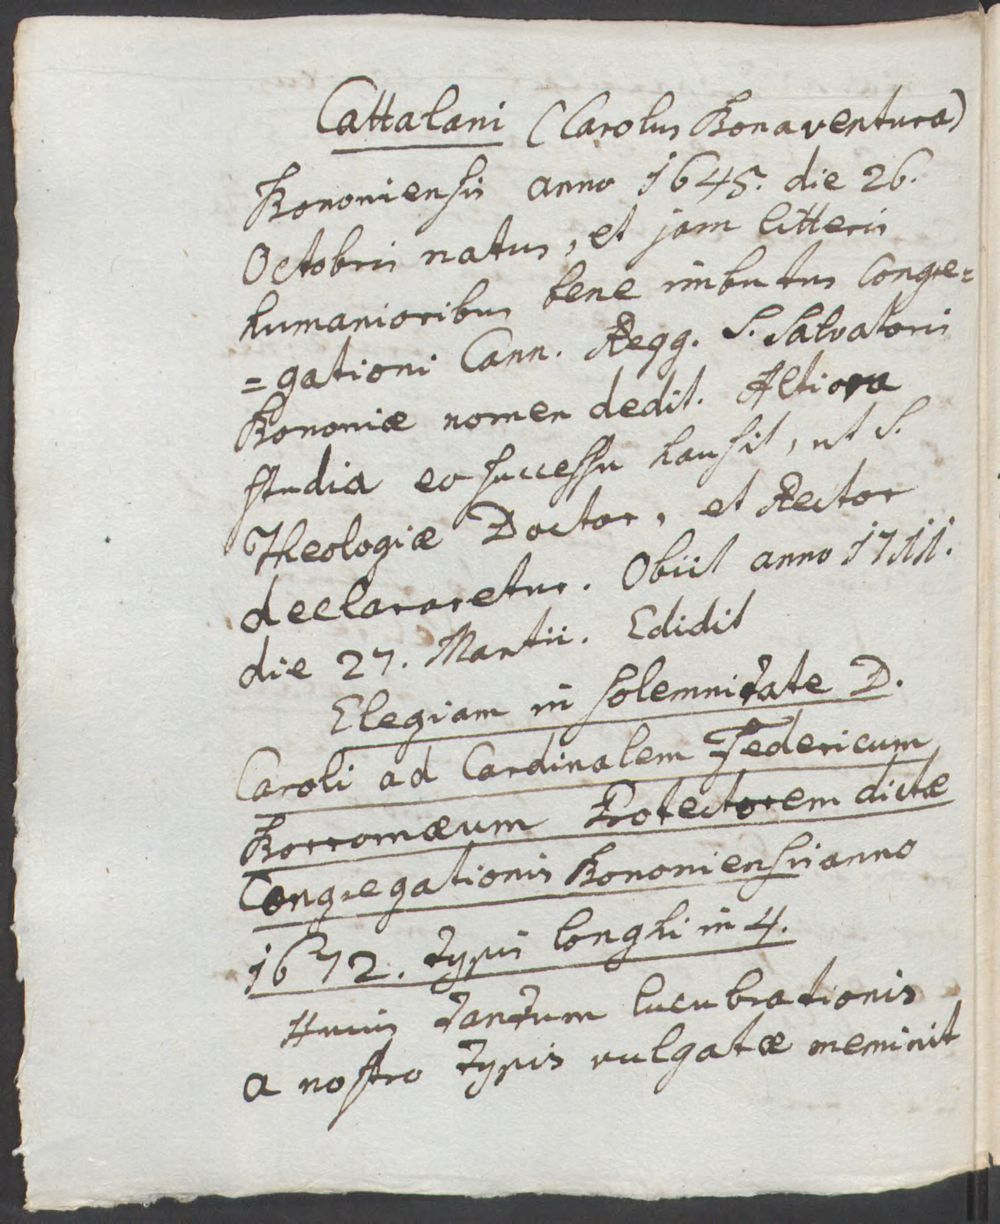 Cattalani (Carolus Bonaventura)
Bononiensis anno 1645. die 26.
Octobris natus, et jam litteris
humanioribus bene imbutus Congre=
=gationi Cann. Regg. S. Salvatoris
Bononiæ nomen dedit. Altiora
studia eo successu hausit, ut S.
Theologiæ Doctor, et Rector
declararetur. Obiit anno 1711.
die 27. Martii. Edidit
Elegiam in solemnitate D.
Caroli ad Cardinalem Federicum
Borromæum Protectorem dictæ
Congregationis Bononiensis anno
1672. typis Longhi in 4.
Hujus tantum lucubrationis
a nostro typis vulgatæ meminit